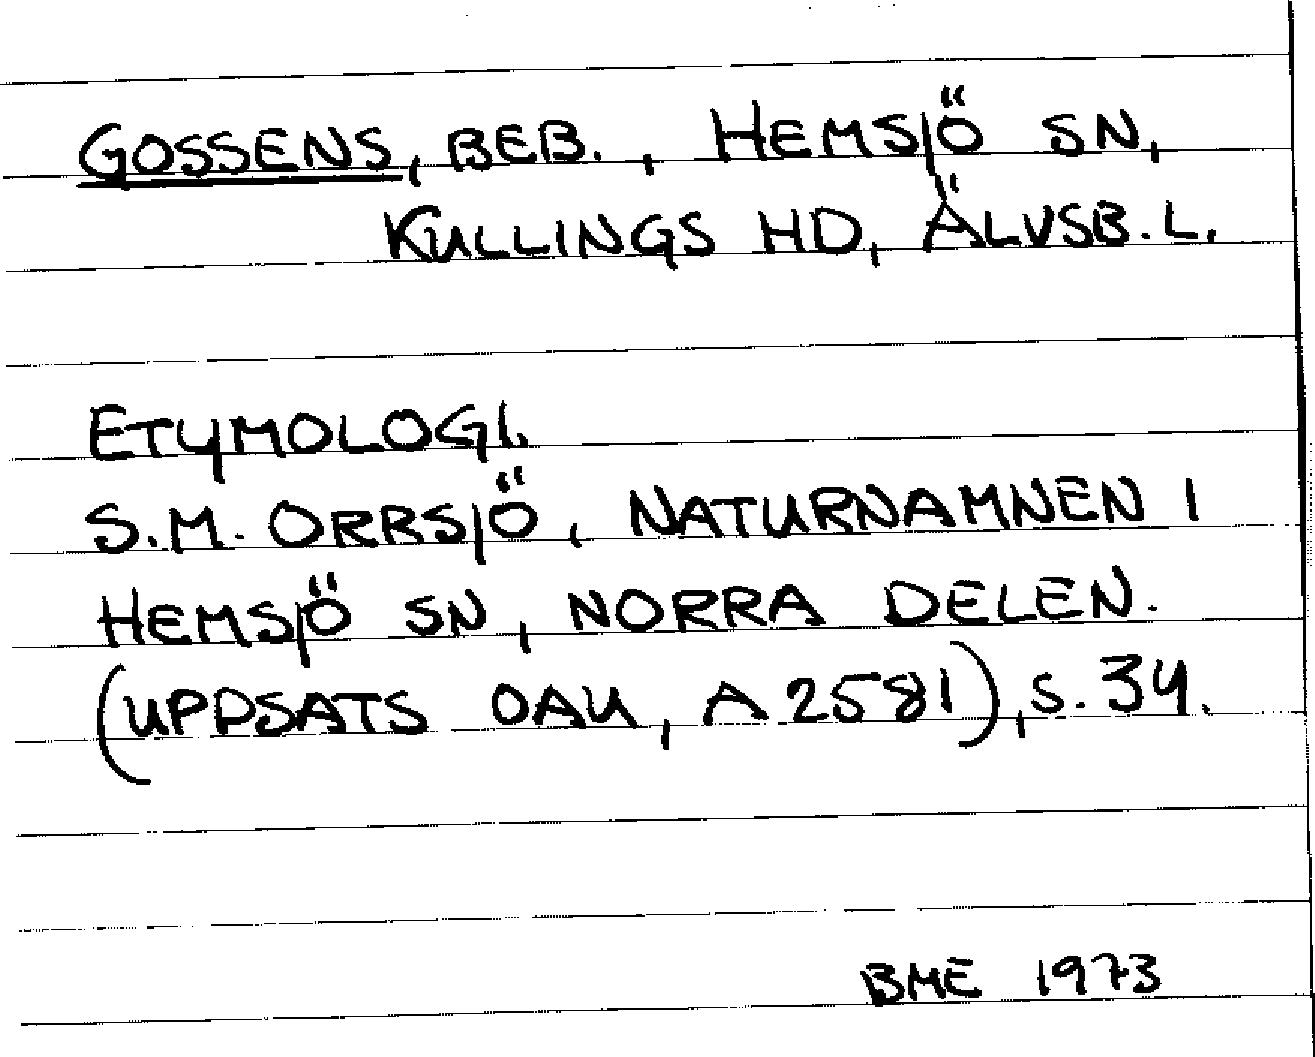 GOSSENS, BEB., HEMSJÖ SN,
KULLINGS HD, ÄLVSB.L.
ETYMOLOGI.
S.M. ORRSJÖ, NATURNAMNEN I
HEMSJÖ SN, NORRA DELEN.
(UPPSATS OAU, A 2581), S. 34.
BME 1973